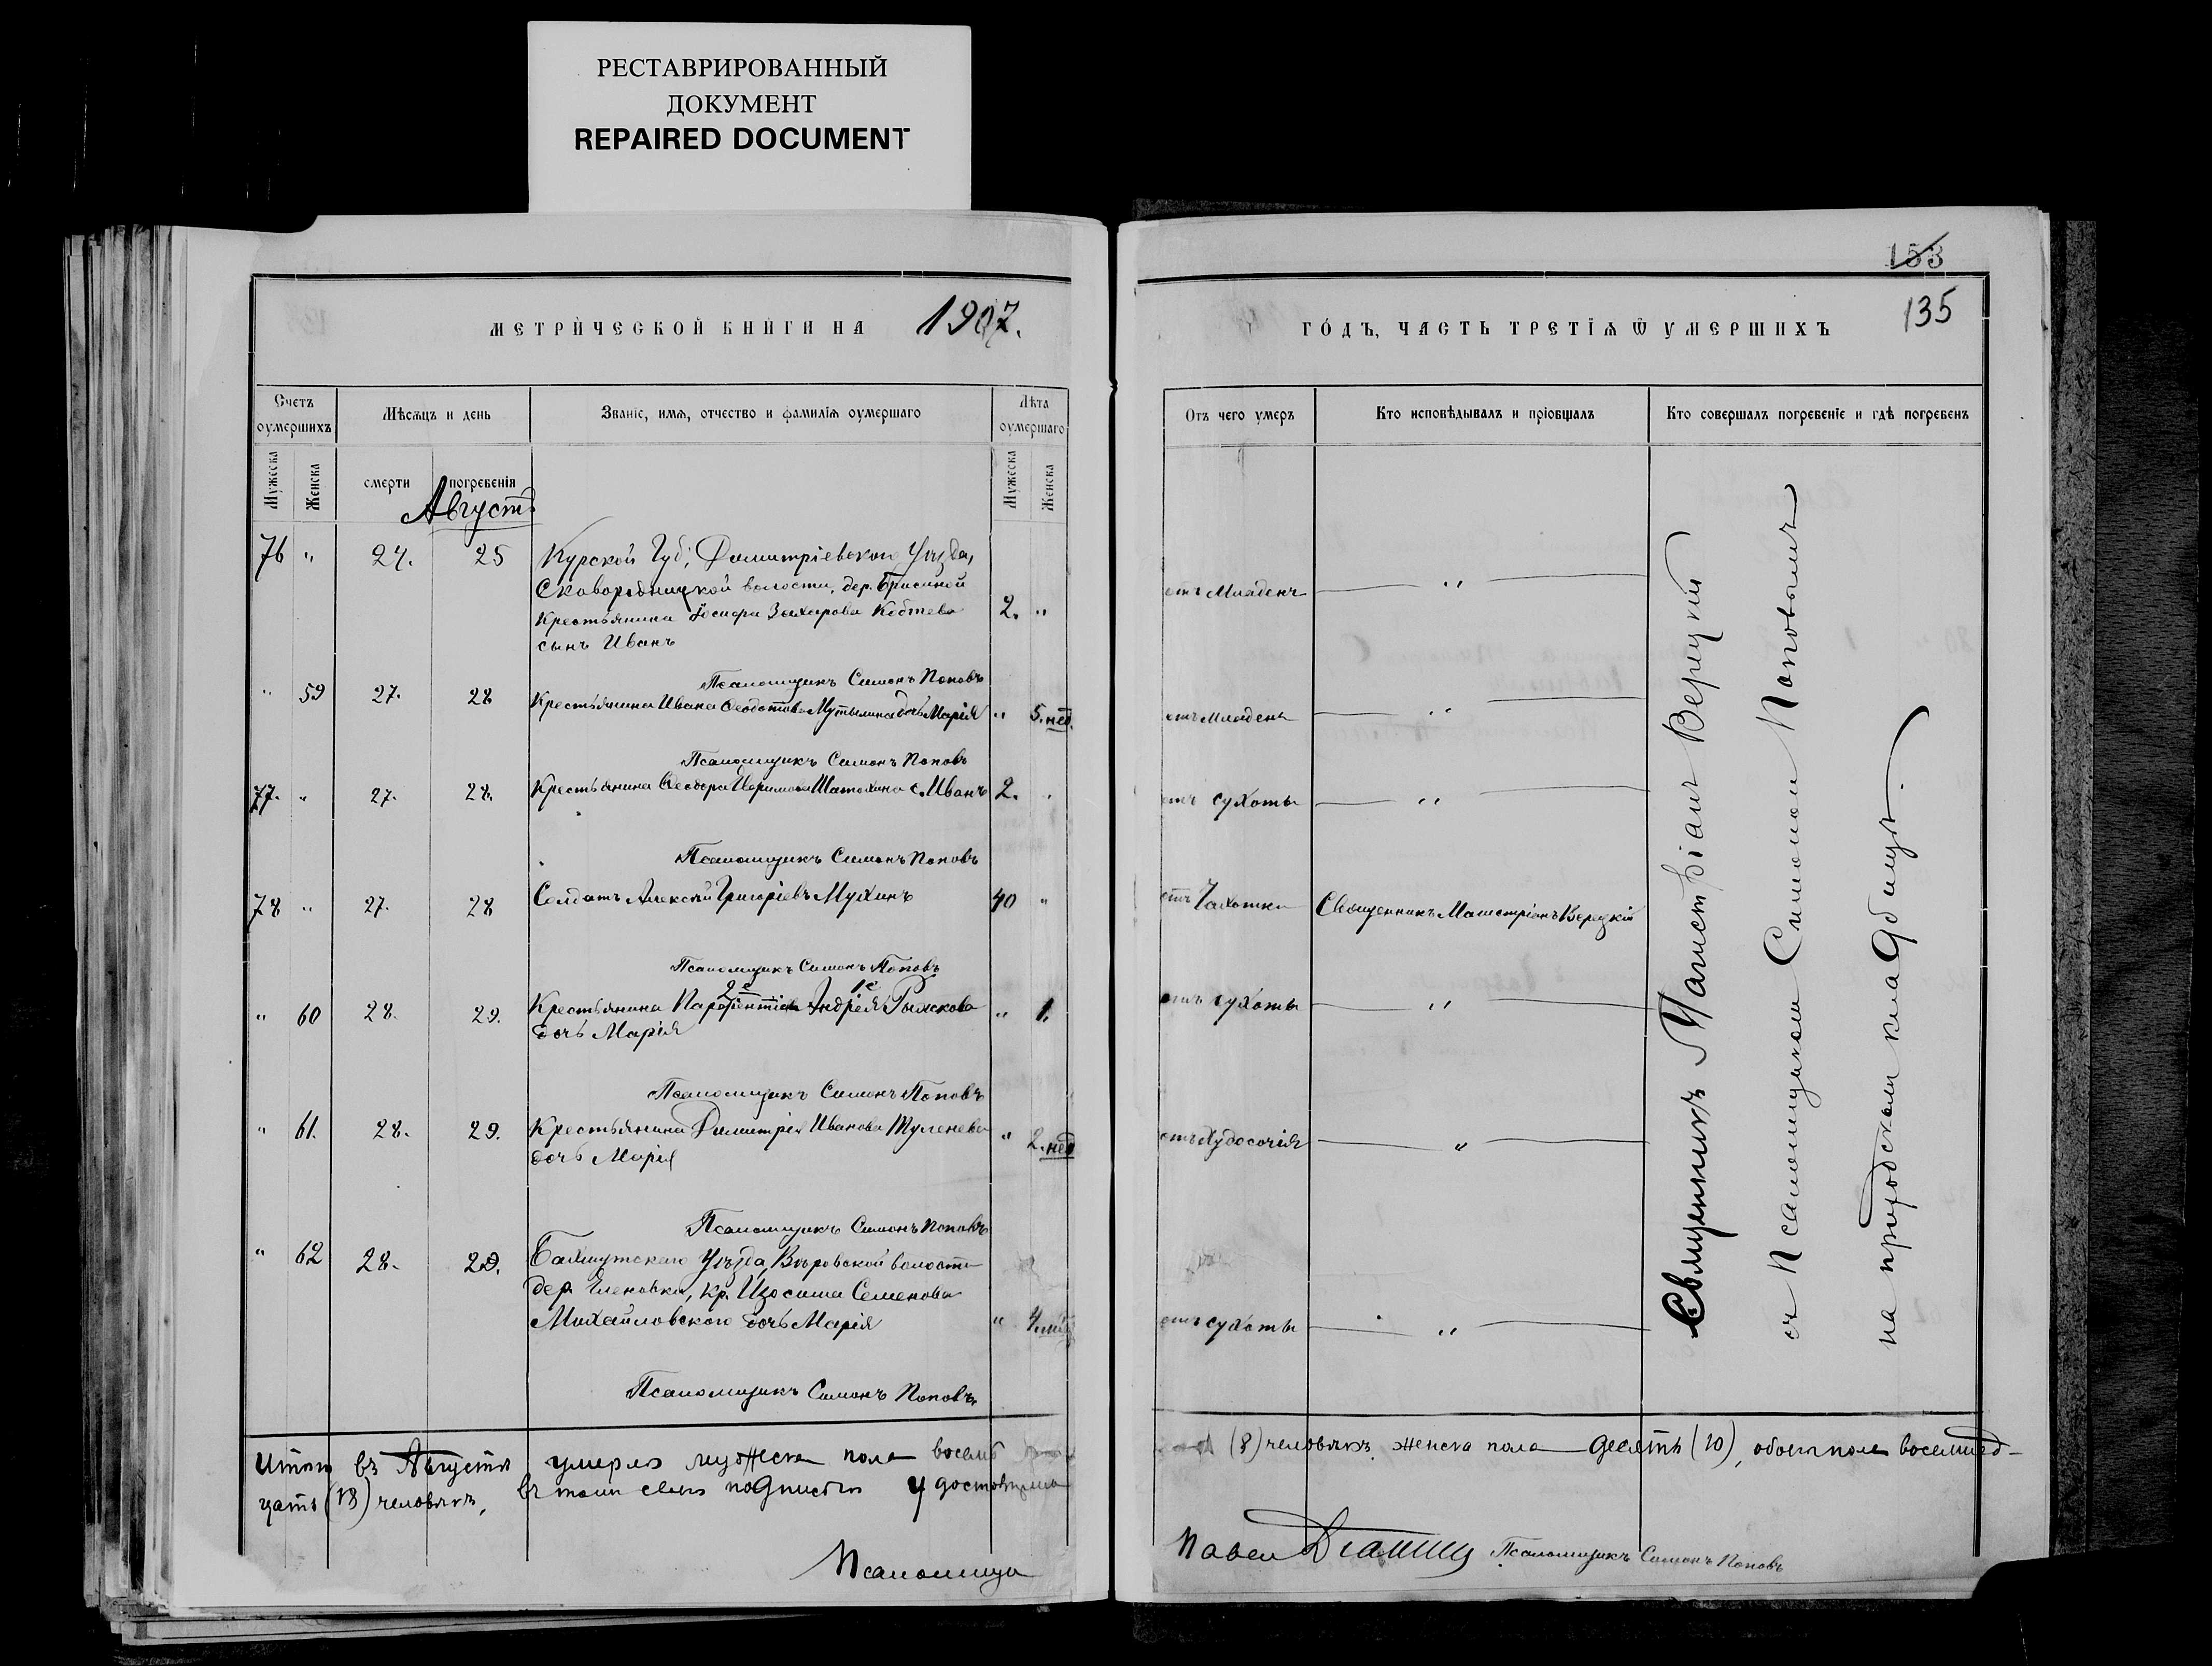 РЕСТАВРИРОВАННЫЙ
ДОКУМЕНТ
REPAIRED DOCUMENT
МЕТРИЧЕСКОЙ КНИГИ НА 1907.
Счетъ оумершихъ
Мѣсяцъ и день
Званіе, имя, отчество и фамилія оумершаго
Лѣта оумершаго
Мужеска
Женска
смерти
погребенія
Мужеска
Женска
Августъ
76 " 24. 25 Курской Губ; Димитріевскаго Уѣзда,
Сковородницкой волости, дер.
Крестьянина Іосифа Захарова 2. "
сынъ Иванъ
Псаломщикъ Симонъ Поповъ
" 59 27. 28 Крестьянина Ивана Ѳеодотова Мутылина дочь Марія " 5. нед.
Псаломщикъ Симонъ Поповъ
77. " 27. 28. Крестьянина Ѳеодора Шатохина с. Иванъ 2. "
Псаломщикъ Симонъ Поповъ
78 " 27. 28 Солдатъ Алексѣй Григоріевъ Мухинъ 40 "
Псаломщикъ Симонъ Поповъ
2е 1е
" 60 28. 29. Крестьянина Парфентіева Андрея Рыжкова " 1.
дочь Марія
Псаломщикъ Симонъ Поповъ
" 61. 28. 29. Крестьянина Димитрія Иванова Туленева " 2. нед
дочь Марія
Псаломщикъ Симонъ Поповъ
" 62 28. 29. Бахмутскаго Уѣзда, Вѣровской волости
дер. Еленовки, кр. Изосима Семенова
Михайловскаго дочь Марія " 4
Псаломщикъ Симонъ Поповъ
Итого въ Августѣ умерло мужеска пола восемь
цать (18) человѣкъ, въ томъ своею подписью удостовѣряемъ
Псаломщи
153
135
ГОДЪ, ЧАСТЬ ТРЕТІЯ Ѿ УМЕРШИХЪ
Отъ чего умеръ
Кто исповѣдывалъ и пріобщалъ
Кто совершалъ погребеніе и гдѣ погребенъ
отъ Младенч "
отъ Младенч "
отъ сухоты "
отъ Чахотки Священникъ Магистріанъ Верецкій
отъ сухоты "
отъ Худосочія "
отъ сухоты "
Священникъ Магистріанъ Верецкій
съ Псаломщикомъ Симономъ Поповымъ
на приходскомъ кладбищѣ.
(8) человѣкъ, женска пола десять (10), обоего пола восемнад-
Павелъ Псаломщикъ Симонъ Поповъ